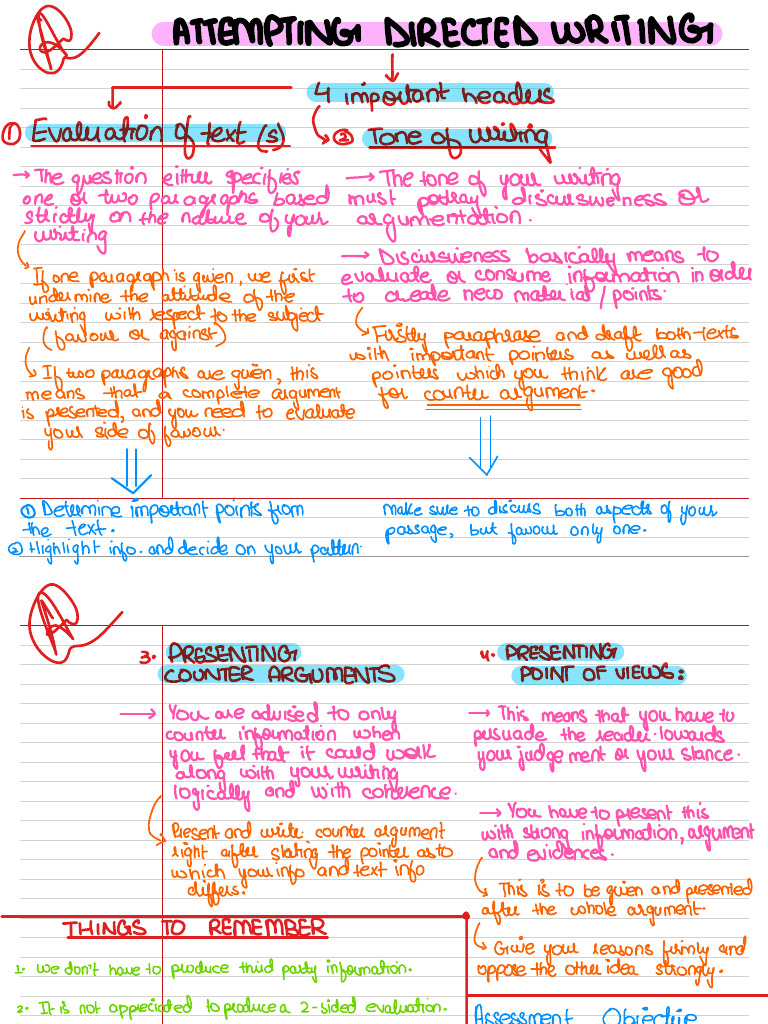 ATTEMPTING DIRECTED WRITING
4 important headers
① Evaluation of text(s)
→ The question either specifies
one or two paragraphs based
strictly on the nature of your
writing
If one paragraph is given, we first
undermine the attitude of the
writing with respect to the subject
(favour or against)
If two paragraphs are given, this
means that a complete argument
is presented, and you need to evaluate
your side of favour.
① Determine important points from
the text.
② Highlight info. and decide on your pattern.
② Tone of writing
→ The tone of your writing
must potray discursiveness or
argumentation.
→ Discursiveness basically means to
evaluate or consume information in order
to create new material / points.
Firstly paraphrase and draft both-texts
with important pointers as well as
pointers which you think are good
for counter argument.
Make sure to discuss both aspects of your
passage, but favour only one.
3. PRESENTING
COUNTER ARGUMENTS
→ You are advised to only
counter information when
you feel that it could work
along with your writing
logically and with coherence.
Present and write counter argument
right after stating the pointer as to
which your info and text info
differs.
4. PRESENTING
POINT OF VIEWS:
→ This means that you have to
persuade the reader towards
your judgement or your stance.
→ You have to present this
with strong information, argument
and evidences.
This is to be given and presented
after the whole argument.
Give your reasons firmly and
oppose the other idea strongly.
THINGS TO REMEMBER
1. We don't have to produce third party information.
2. It is not appreciated to produce a 2-sided evaluation.
Assessment Objective